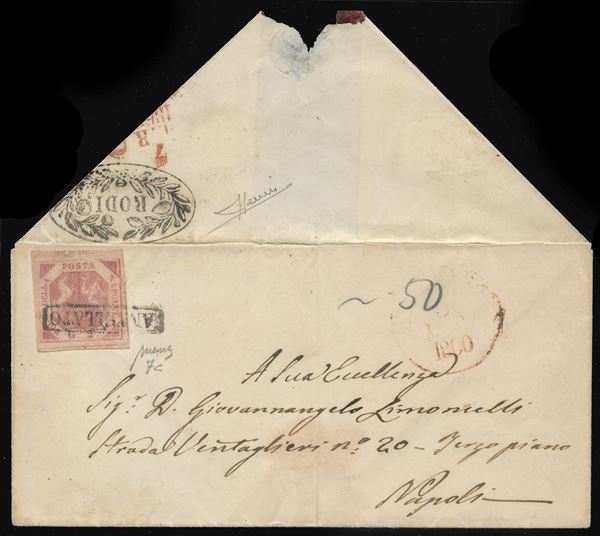 RODI
POSTA
ANNULLATO
~ 50
1860
7c
A Sua Eccellenza
Sigr. D. Giovannangelo Limoncelli
Strada Ventaglieri no. 20 - Terzo piano
Napoli